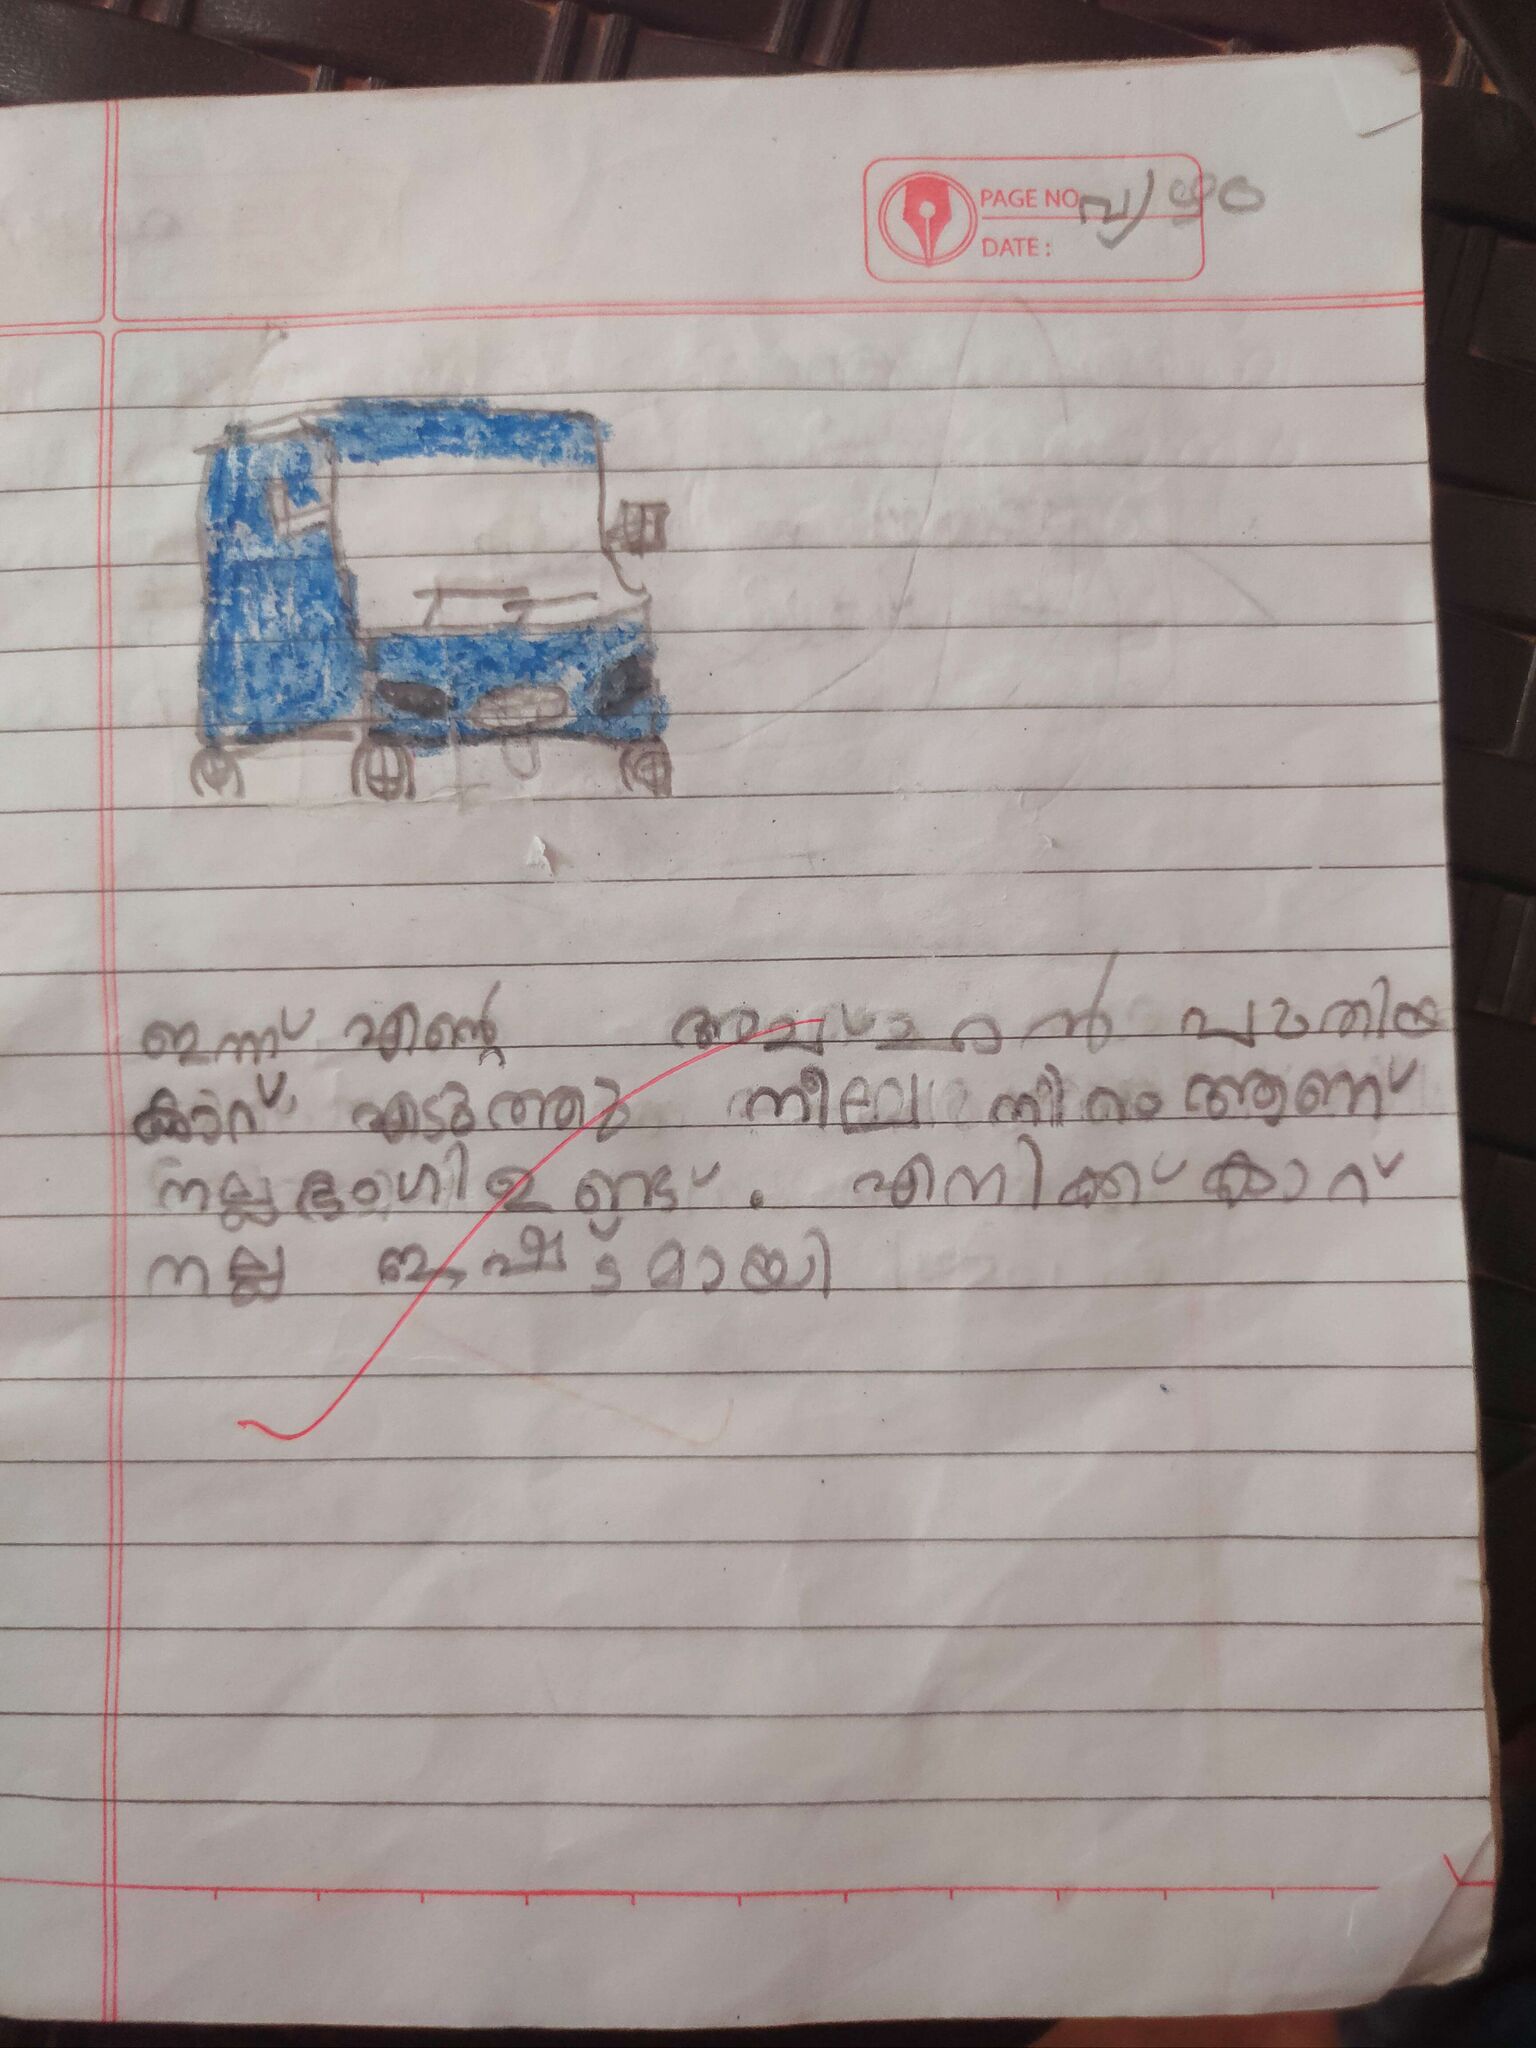 PAGE NO വ്യാഴം
DATE :
ഇന്ന് എന്റെ അച്ചാച്ചൻ പുതിയ
കാറ് എടുത്തു നീല നിറം ആണ്
നല്ല ഭംഗി ഉണ്ട് . എനിക്ക് കാറ്
നല്ല ഇഷ്ട്ടമായി